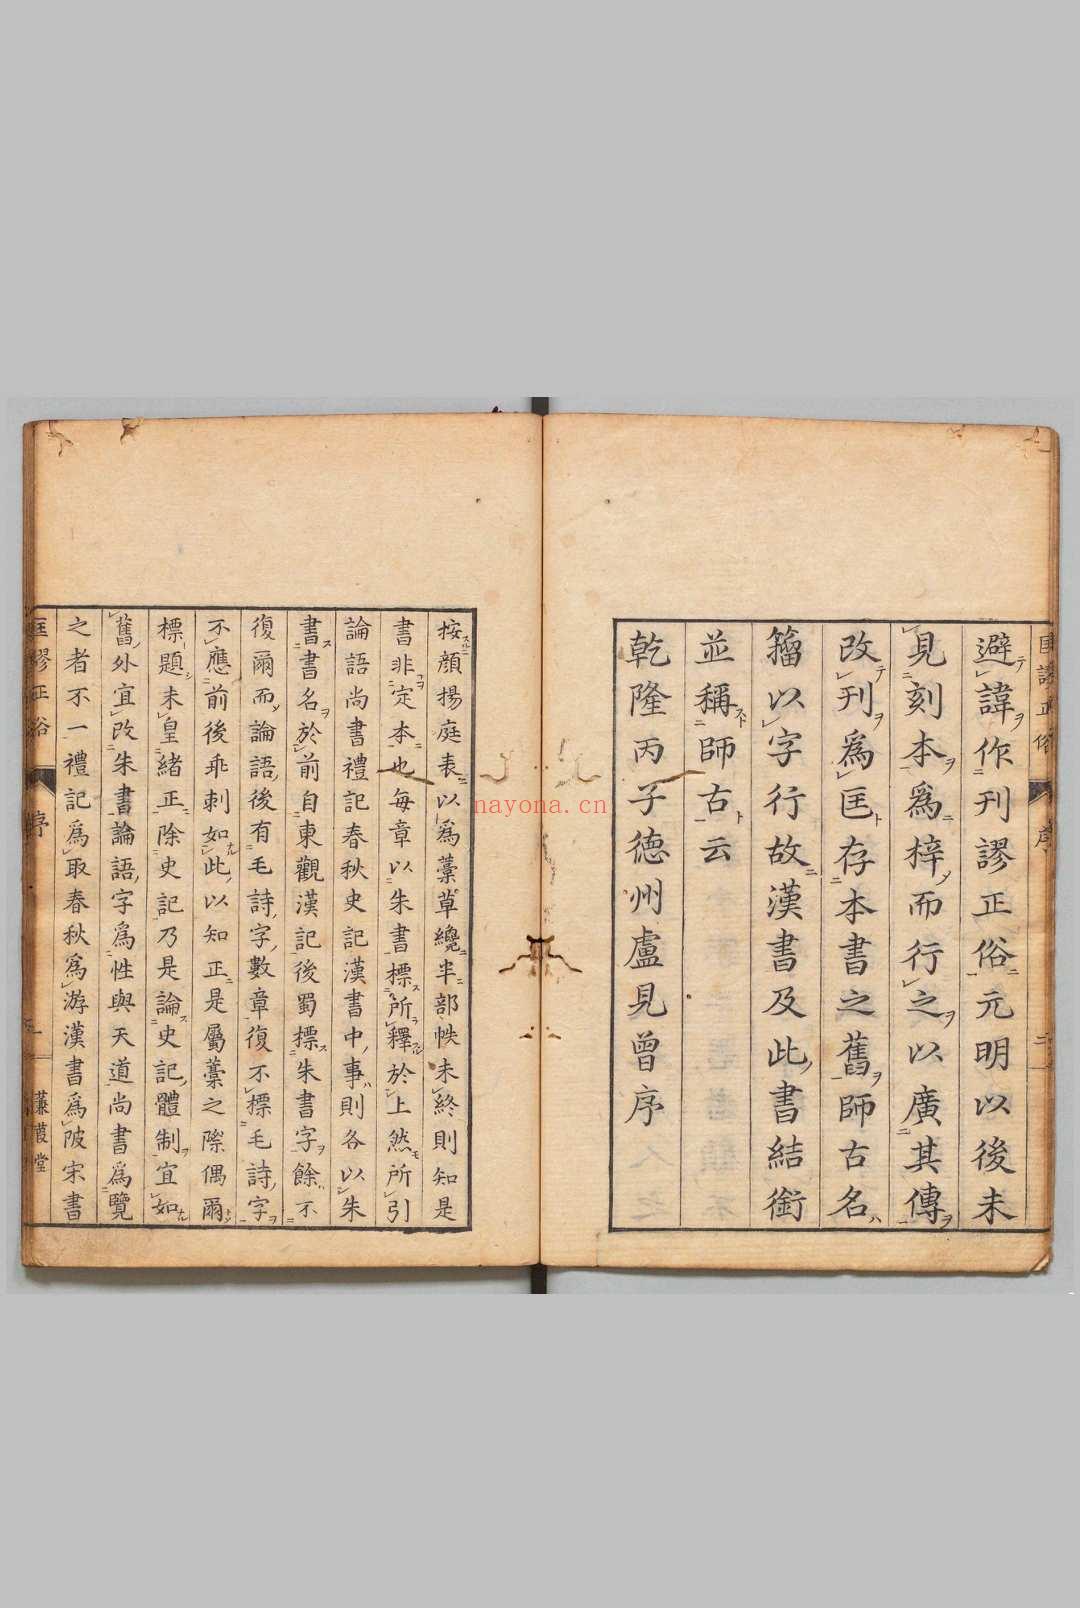 避諱作刊謬正俗元明以後未
見刻本爲梓而行之以廣其傳
改刊爲匡存本書之舊師古名
籀以字行故漢書及此書結銜
並稱師古云
乾隆丙子德州盧見曾序
按顔揚庭表以爲藁草纔半部帙未終則知是
書非定本也每章以朱書標所釋於上然所引
論語尚書禮記春秋史記漢書中事則各以朱
書書名於前自東觀漢記後蜀標朱書字餘不
復爾而論語後有毛詩字數章復不標毛詩字
不應前後乖剌如此以知正是屬藁之際偶爾
標題未皇緒正除史記乃是論史記體制宜如
舊外宜改朱書論語字爲性與天道尚書爲覽
之者不一禮記爲取春秋爲游漢書爲陂宋書
匡謬正俗
序
蒹葭堂
nayona.cn